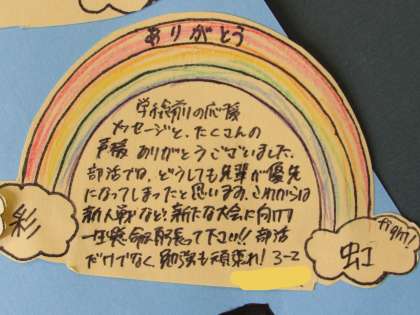 ありがとう
学総前の応援
メッセージと、たくさんの
声援 ありがとうございました。
部活では、どうしても先輩が優先
になってしまったと思います。これからは
新人戦など、新たな大会に向けて
一生懸命頑張って下さい!! 部活
だけでなく 勉強も頑張れ! 3-2
彩
虹
fight!